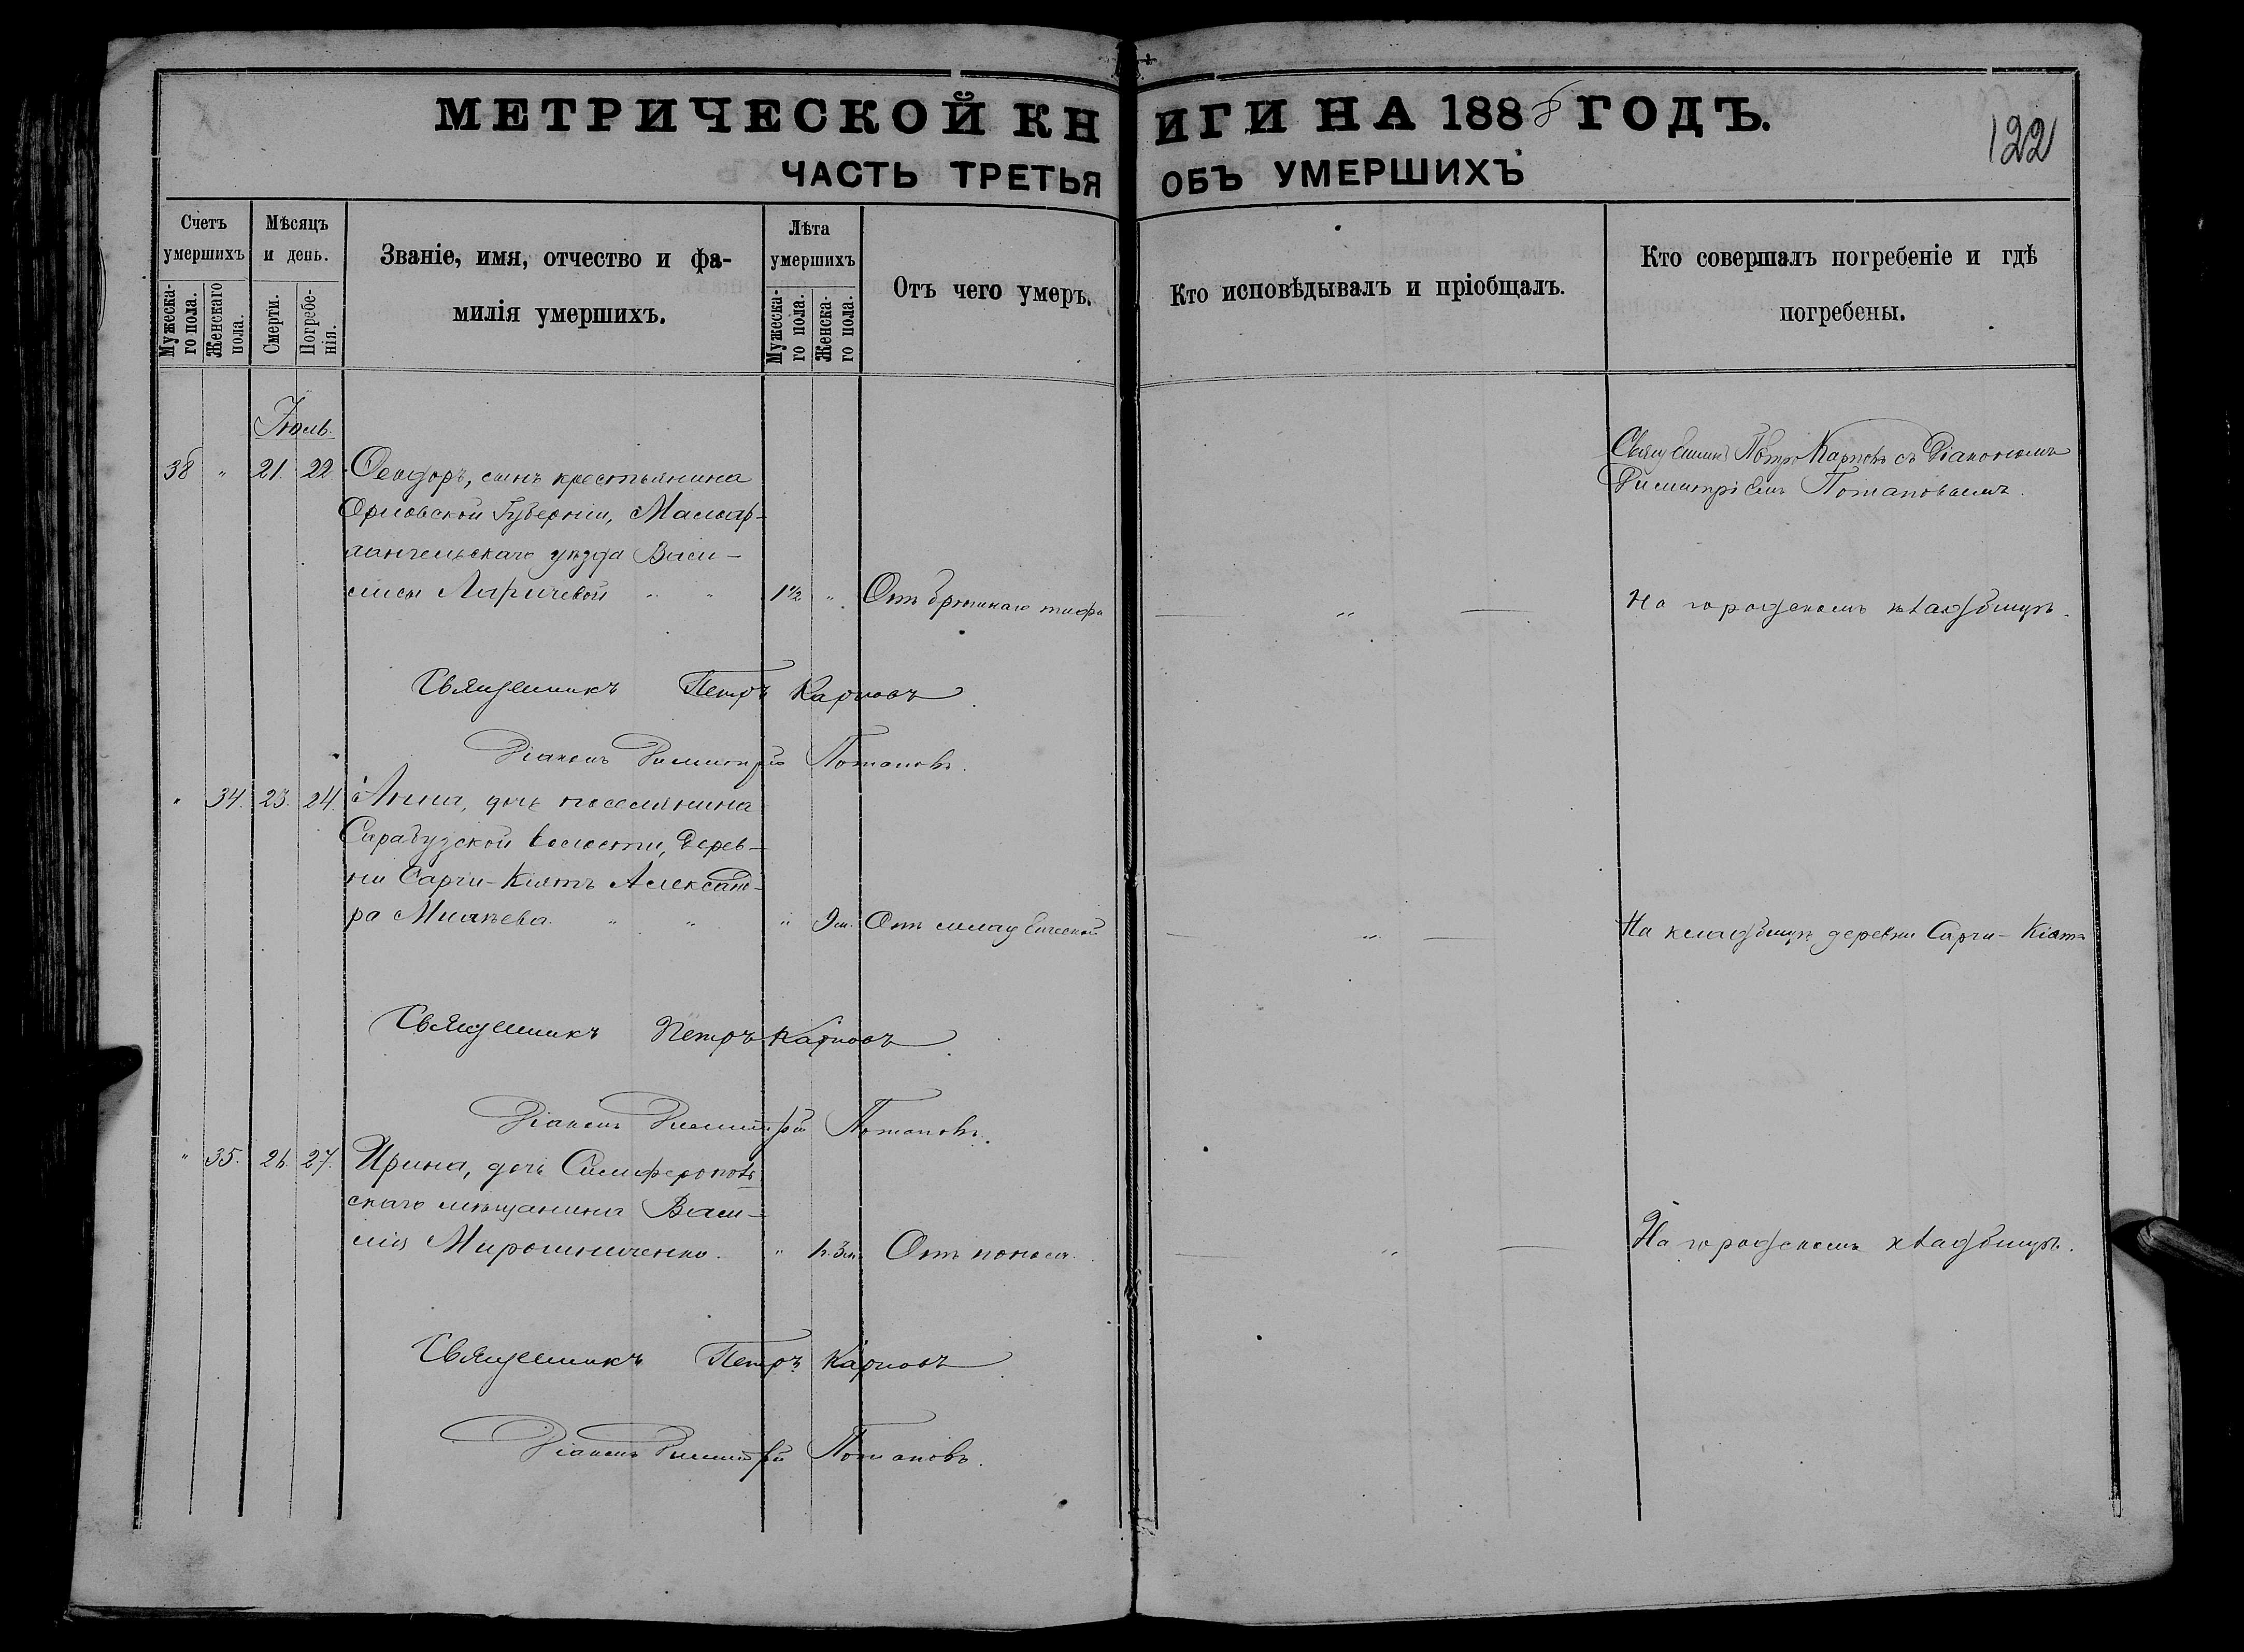 МЕТРИЧЕСКОЙ КНИГИ НА 1885 ГОДЪ.
122
ЧАСТЬ ТРЕТЬЯ ОБЪ УМЕРШИХЪ
Счетъ умершихъ
Мужеска-го пола.
Женскаго пола.
Мѣсяцъ и день.
Смерти.
Погребе-нія.
Званіе, имя, отчество и фа-
милія умершихъ.
Лѣта умершихъ
Мужеска-го пола.
Женска-го пола.
Отъ чего умеръ.
Кто исповѣдывалъ и пріобщалъ.
Кто совершалъ погребеніе и гдѣ
погребены.
Іюль.
38 " 21. 22. Ѳеодоръ, сынъ крестьянина
Орловской Губерніи, Малоар-
хангельскаго уѣзда Васи-
лисы Лиричевой " " 1½ " Отъ брюшнаго тифа — " —
Священникъ Петръ Карповъ съ Діакономъ
Димитріемъ Потаповымъ.
На городскомъ кладбищѣ.
Священникъ Петръ Карповъ.
Діаконъ Димитрій Потаповъ.
" 34. 23. 24. Анна, дочь поселянина
Сарабузской волости, Дерев-
ни Сарчи-Кіятъ Александ-
ра Михѣева " " " 9 м. Отъ младенческой — " — На кладбищѣ деревни Сарчи-Кіятъ
Священникъ Петръ Карповъ.
Діаконъ Димитрій Потаповъ.
" 35. 26. 27. Ирина, дочь Симферополь
скаго мѣщанина Васи-
лія Мирошниченко. " 1г. 3м. Отъ поноса. — " — На городскомъ кладбищѣ.
Священникъ Петръ Карповъ.
Діаконъ Димитрій Потаповъ.